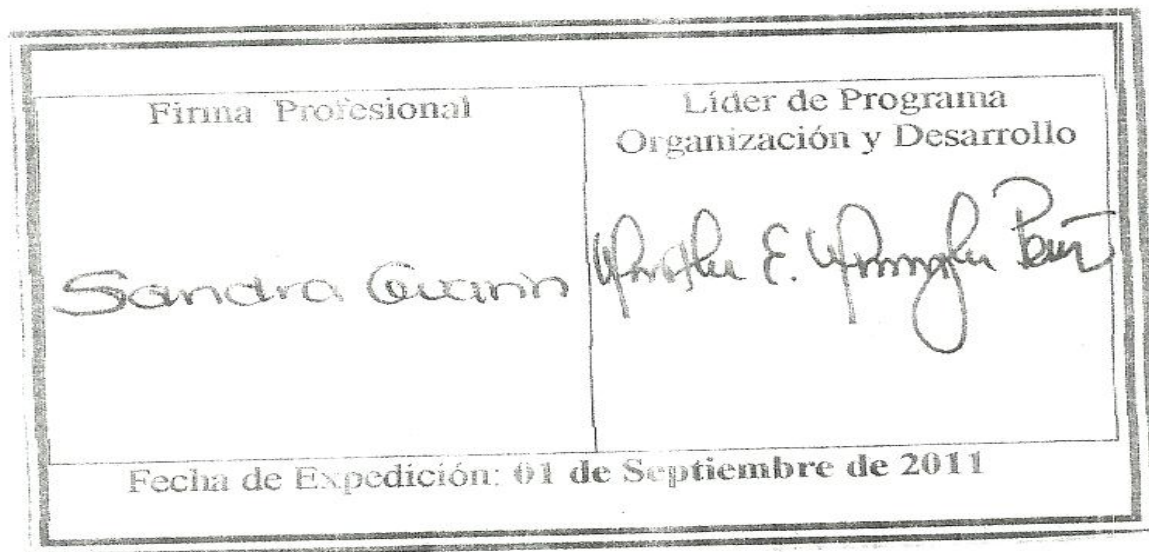 Firma Profesional
Líder de Programa
Organización y Desarrollo
Sandra Guarin
E.
Fecha de Expedición: 01 de Septiembre de 2011